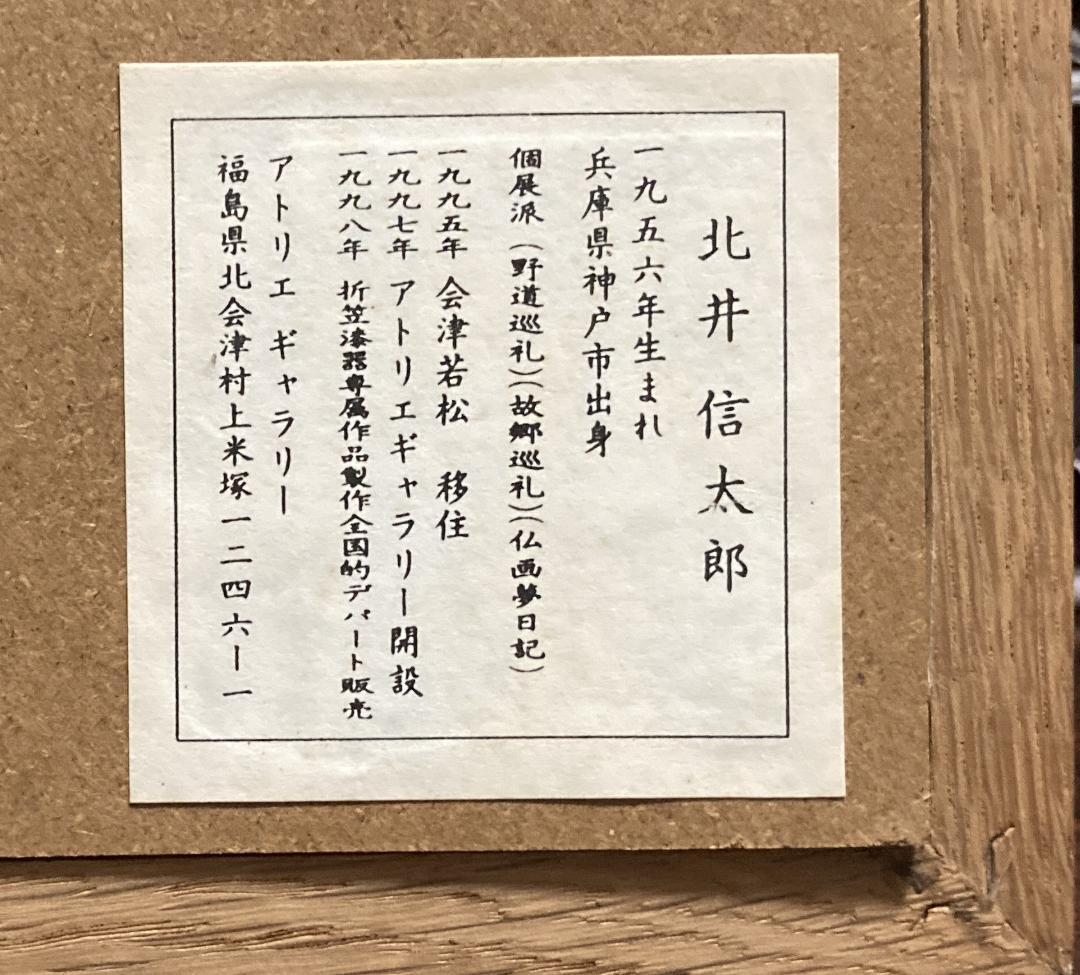 北井 信太郎
一九五六年生まれ
兵庫県神戸市出身
個展派（野道巡礼）（故郷巡礼）（仏画夢日記）
一九九五年 会津若松 移住
一九九七年 アトリエギャラリー開設
一九九八年 折笠漆器専属作品製作全国的デパート販売
アトリエ ギャラリー
福島県北会津村上米塚一二四六ー一